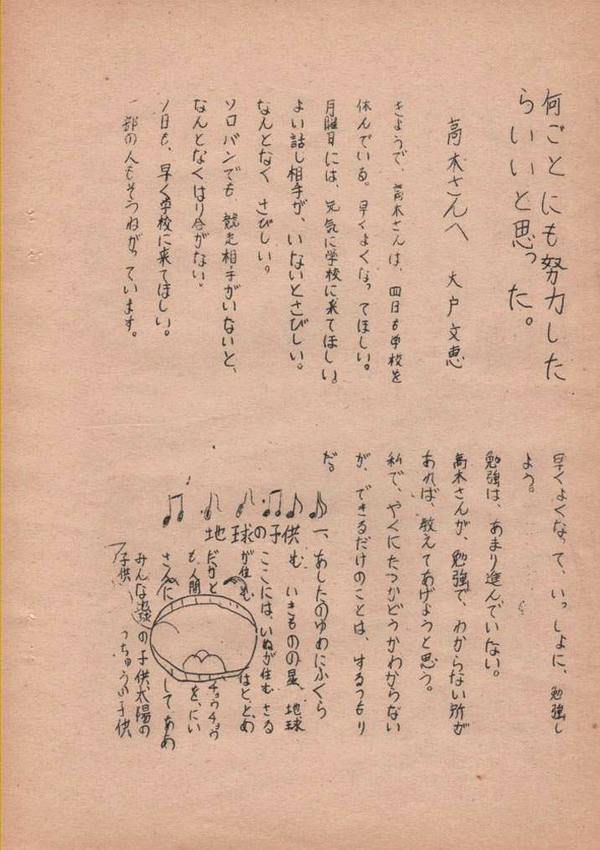 何ごとにも努力した
らいいと思った。
高木さんへ 大戸文恵
きようで、高木さんは、四日も学校を
休んでいる。早くよくなってほしい。
月曜日には、元気に学校に来てほしい。
よい話し相手が、いないとさびしい。
なんとなくさびしい。
ソロバンでも競走相手がいないと、
なんとなくはり合がない。
一日も、早く学校に来てほしい。
一部の人もそうねがっています。
早くよくなって、いっしょに、勉強し
よう。
勉強は、あまり進んでいない。
高木さんが、勉強で、わからない所が
あれば、教えてあげようと思う。
私で、やくにたつかどうかわからない
が、できるだけのことは、するつもり
だ。
地球の子供
一、あしたのゆめにふくら
む いきものの星、地球
ここには、いぬが住む さる
が住む はととめ
だかと チョウチョウ
も、人間 を、にい
さんに してあめ
みんな の子供太陽の
子供 うちゅうの子供